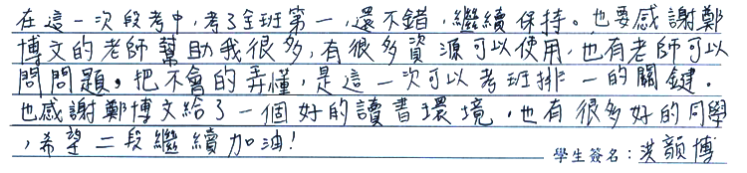 在這一次段考中,考了全班第一,還不錯,繼續保持。也要感謝鄭
博文的老師幫助我很多,有很多資源可以使用,也有老師可以
問問題,把不會的弄懂,是這一次可以考班排一的關鍵.
也感謝鄭博文給了一個好的讀書環境,也有很多好的同學
,希望二段繼續加油!
學生簽名:洪顥博